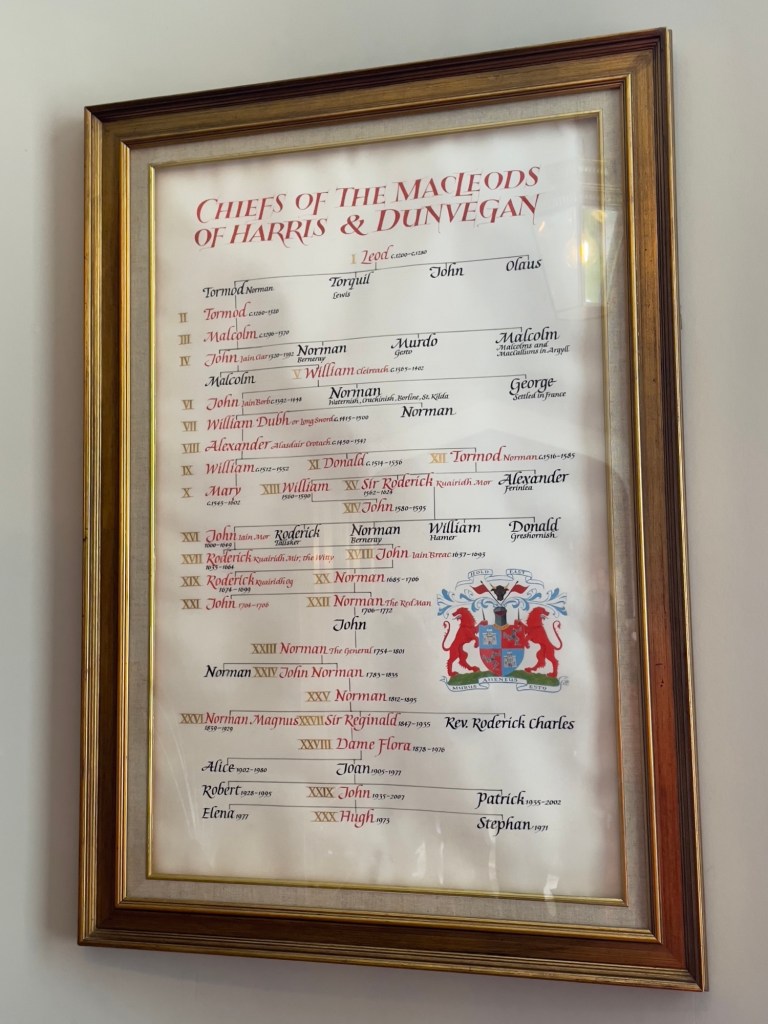 CHIEFS OF THE MACLEODS
OF HARRIS & DUNVEGAN
I Leod c.1200-c.1280
Tormod Norman Torquil John Olaus
Lewis
II Tormod
III Malcolm
IV John Norman Murdo Malcolm
Berneray Gesto Malcolms and
MacCallums in Argyll
Malcolm V William Cleireach c.1365-1402
VI John Iain Borb Norman George
Waternish, Settled in France
VII William Dubh or Long Sword c.1415-1500 Norman
VIII Alexander Alasdair Crotach c.1450-1547
IX William c.1512-1552 XI Donald c.1514-1556 XII Tormod Norman c.1516-1585
X Mary XIII William XV Sir Roderick Ruairidh Mor Alexander
c.1543-1602 1560-1590 1562-1626 Ferinlea
XIV John 1580-1595
XVI John Iain Mor Roderick Norman William Donald
Talisker Berneray Hamer Greshornish
XVII Roderick Ruairidh Mir, the Witty XVIII John Iain Breac 1637-1693
1635-1664
XIX Roderick Ruairidh Og XX Norman 1685-1706
1674-1699
XXI John 1704-1706 XXII Norman The Red Man
1706-1772
John
XXIII Norman The General 1754-1801
Norman XXIV John Norman 1783-1835
XXV Norman 1812-1895
XXVI Norman Magnus XXVII Sir Reginald 1847-1935 Rev. Roderick Charles
1839-1929
XXVIII Dame Flora 1878-1976
Alice 1902-1980 Joan 1905-1977
Robert 1928-1995 XXIX John 1935-2007 Patrick 1935-2002
Elena 1977 XXX Hugh 1973 Stephan 1971
HOLD FAST
MURUS AHENEUS ESTO